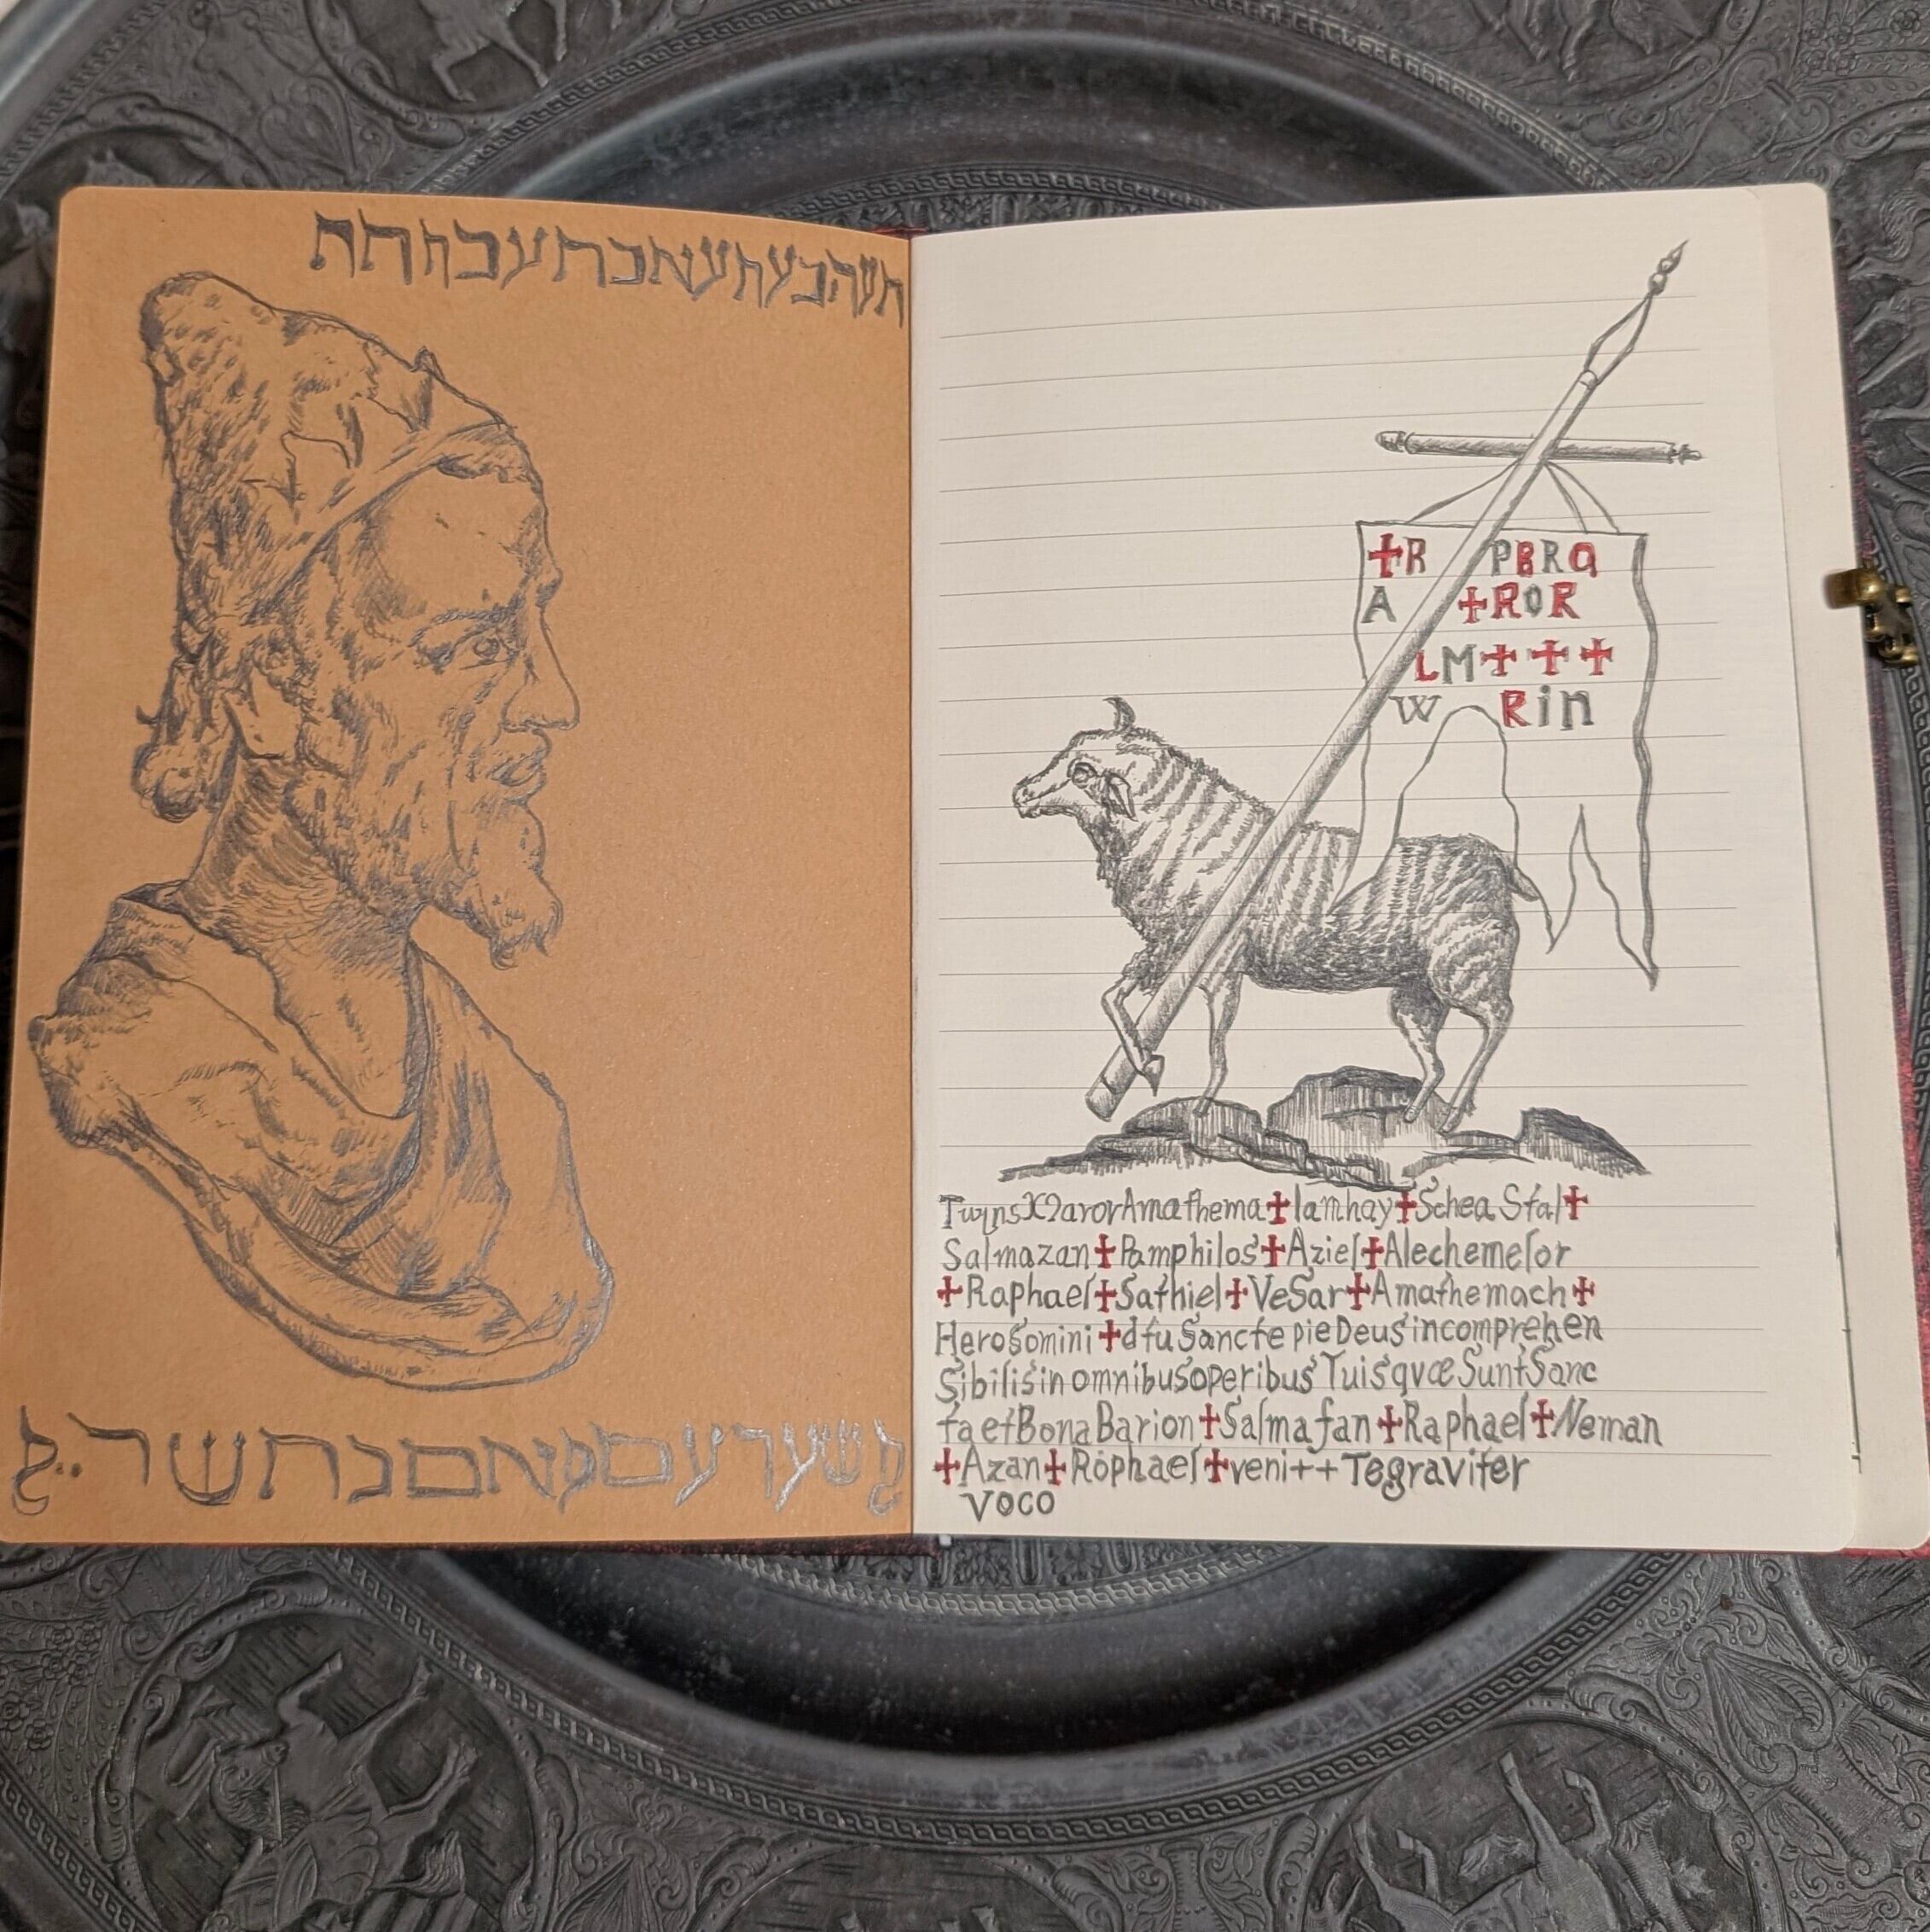 חשהבעחעאכחעבוחת
✝R PBRQ
A ✝ROR
LM✝✝✝
W Rin
Amathema✝lamhay✝Schea Stal✝
Salmazan✝Pamphilos✝Aziel✝Alechemelor
✝Raphael✝Sathiel✝VeSar✝Amathemach✝
Herosomini✝d tu Sancte pie Deus incomprehen
Sibilis in omnibus operibus Tuis qvæ Sunt Sanc
ta et Bona Barion✝Salmafan✝Raphael✝Neman
✝Azan✝Rophael✝veni++Tegraviter
VOCO